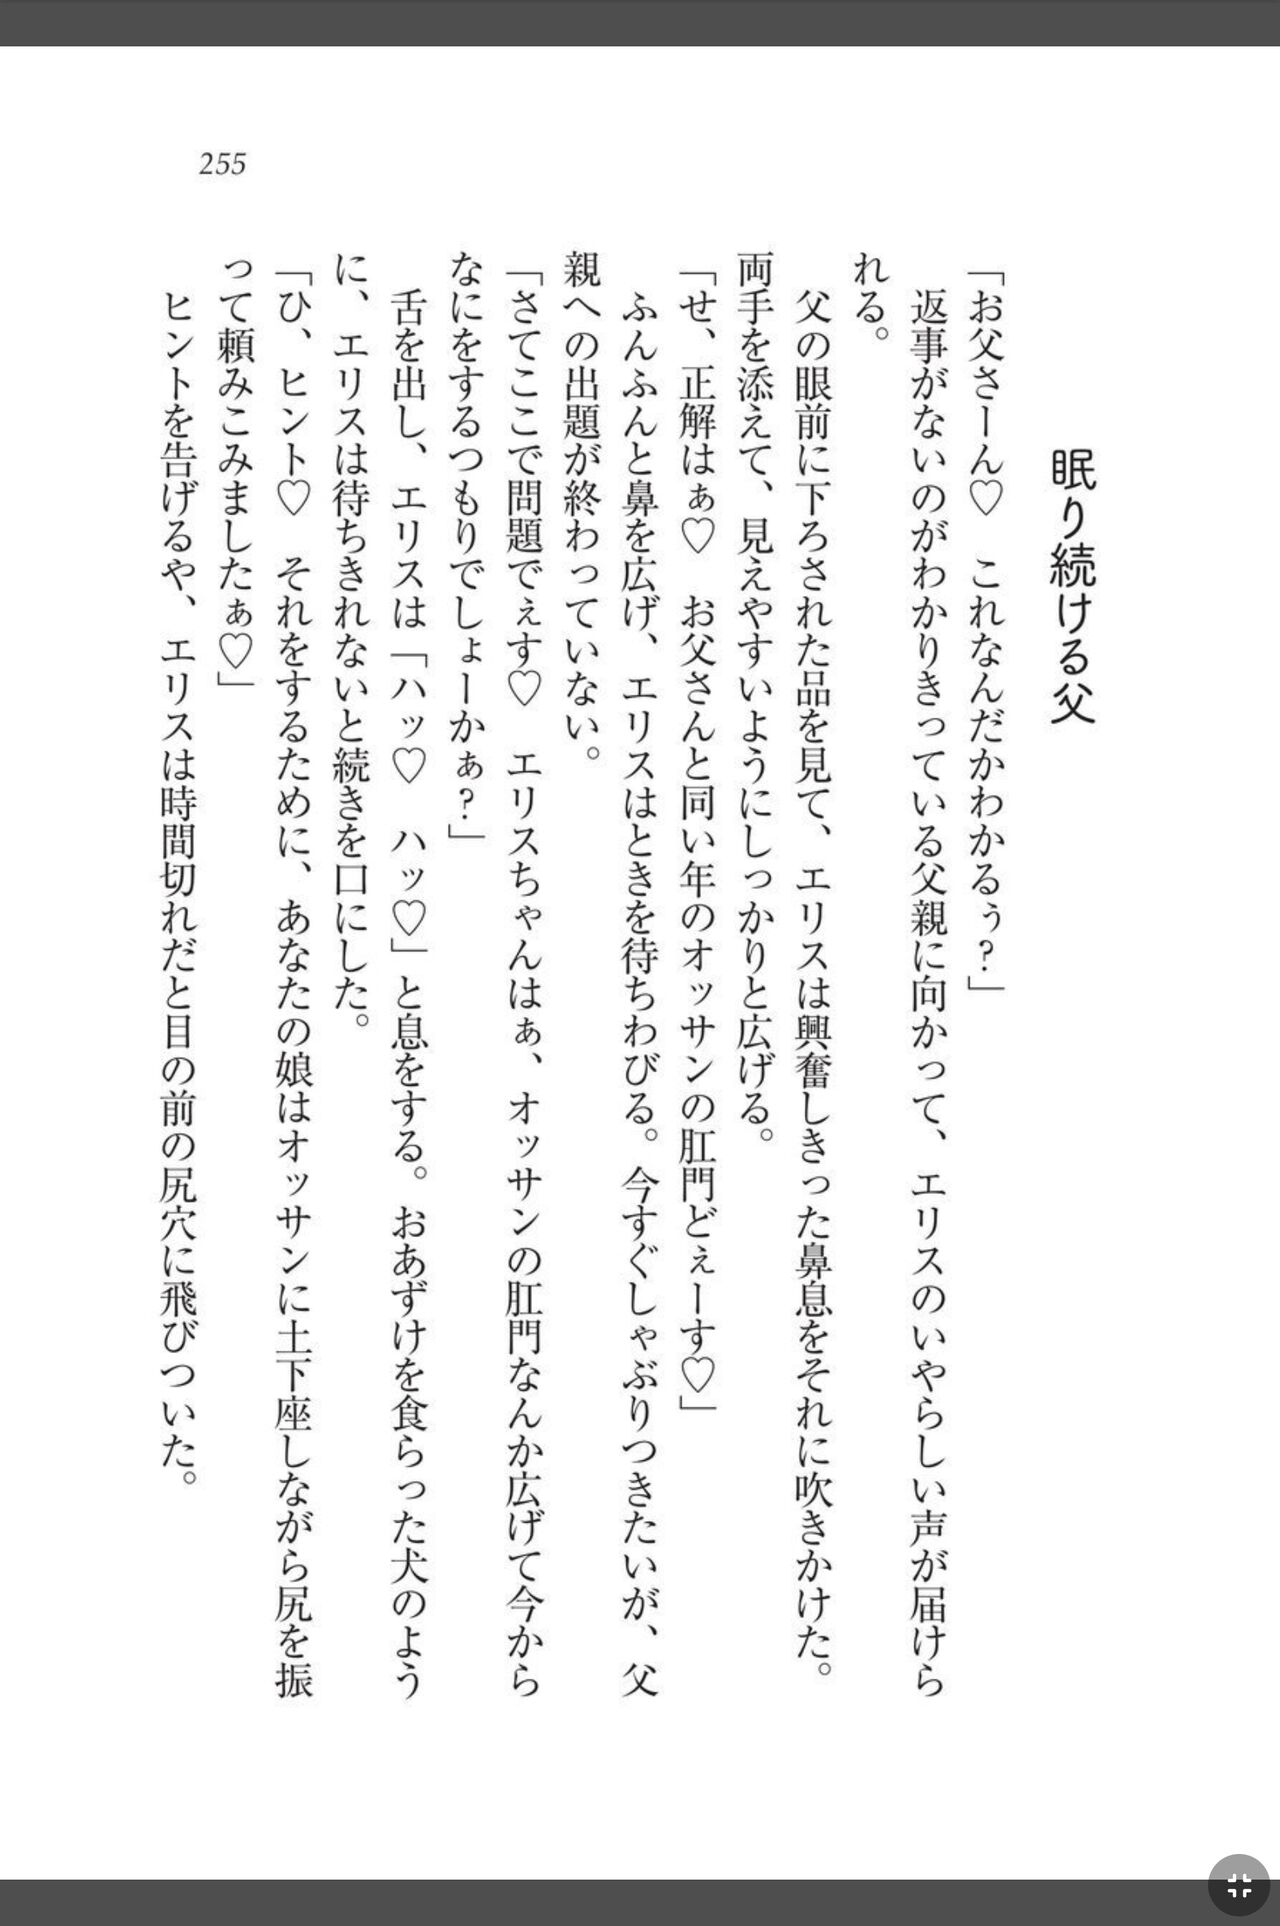 255
眠り続ける父
「お父さーん♡　これなんだかわかるぅ？」
　返事がないのがわかりきっている父親に向かって、エリスのいやらしい声が届けら
れる。
　父の眼前に下ろされた品を見て、エリスは興奮しきった鼻息をそれに吹きかけた。
両手を添えて、見えやすいようにしっかりと広げる。
「せ、正解はぁ♡　お父さんと同い年のオッサンの肛門どぇーす♡」
　ふんふんと鼻を広げ、エリスはときを待ちわびる。今すぐしゃぶりつきたいが、父
親への出題が終わっていない。
「さてここで問題でぇす♡　エリスちゃんはぁ、オッサンの肛門なんか広げて今から
なにをするつもりでしょーかぁ？」
　舌を出し、エリスは「ハッ♡　ハッ♡」と息をする。おあずけを食らった犬のよう
に、エリスは待ちきれないと続きを口にした。
「ひ、ヒント♡　それをするために、あなたの娘はオッサンに土下座しながら尻を振
って頼みこみましたぁ♡」
　ヒントを告げるや、エリスは時間切れだと目の前の尻穴に飛びついた。